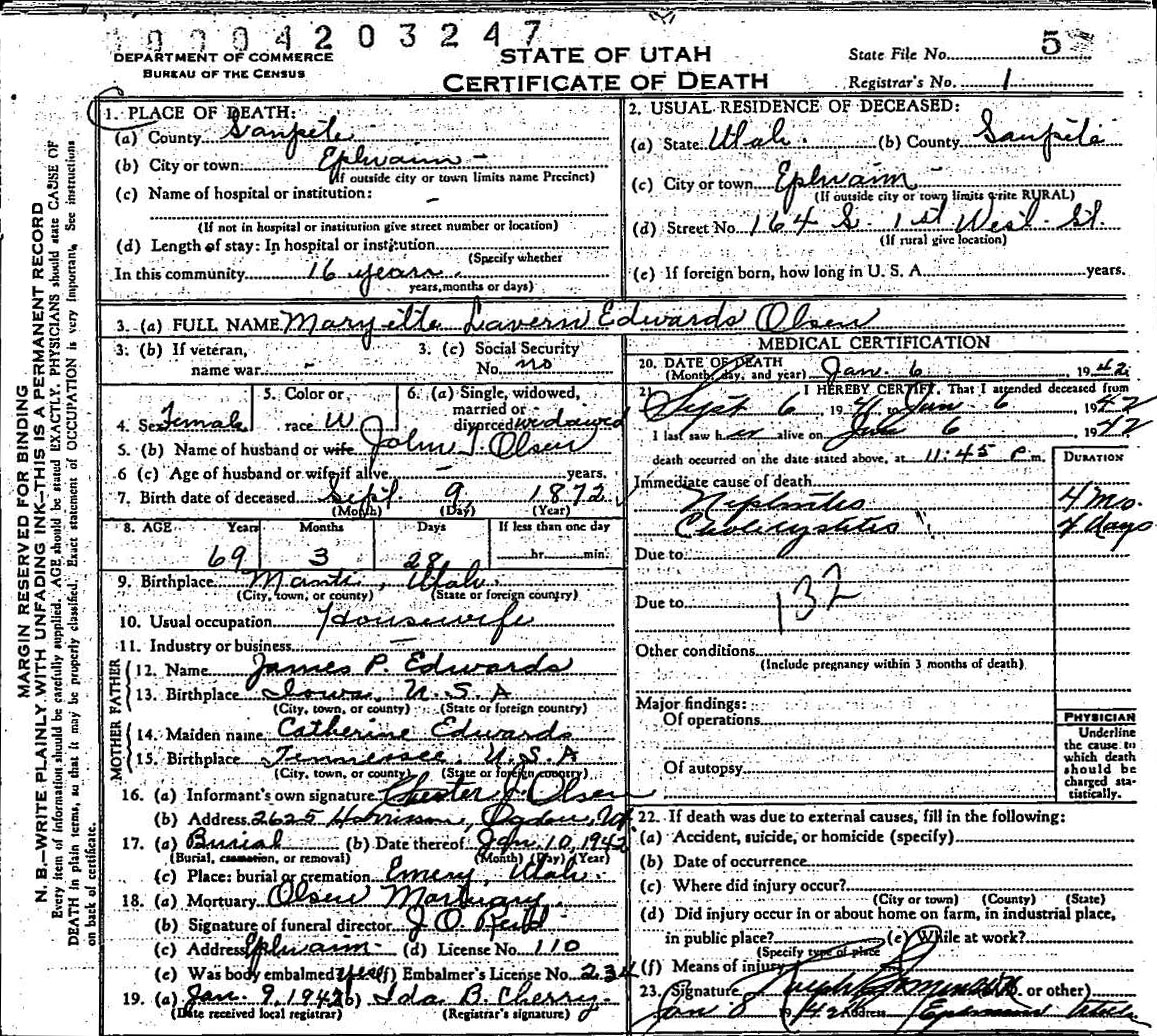 1 0 0 0 4 2 0 3 2 4 7
DEPARTMENT OF COMMERCE
BUREAU OF THE CENSUS
STATE OF UTAH
CERTIFICATE OF DEATH
State File No. 5
Registrar's No. 1
MARGIN RESERVED FOR BINDING
N. B.—WRITE PLAINLY WITH UNFADING INK—THIS IS A PERMANENT RECORD
Every item of Information should be carefully supplied. AGE should be stated EXACTLY. PHYSICIANS should state CAUSE OF
DEATH in plain terms, so that it may be properly classified. Exact statement of OCCUPATION is very important. See instructions
on back of certificate.
1. PLACE OF DEATH:
(a) County Sanpete
(b) City or town: Ephraim -
(If outside city or town limits name Precinct)
(c) Name of hospital or institution: -
(If not in hospital or institution give street number or location)
(d) Length of stay: In hospital or institution
(Specify whether
In this community 16 years.
years, months or days)
2. USUAL RESIDENCE OF DECEASED:
(a) State Utah. (b) County Sanpete
(c) City or town Ephraim -
(If outside city or town limits write RURAL)
(d) Street No. 164 S. 1st West St.
(If rural give location)
(e) If foreign born, how long in U. S. A. years.
3. (a) FULL NAME Maryette Lavern Edwards Olsen
3. (b) If veteran,
name war -
3. (c) Social Security
No. no
4. Sex Female
5. Color or
race W
6. (a) Single, widowed,
married or
divorced widowed
5. (b) Name of husband or wife John T. Olsen
6 (c) Age of husband or wife if alive - years.
7. Birth date of deceased Sept. 9 1872
(Month) (Day) (Year)
8. AGE Years Months Days If less than one day
69 3 28 hr. min.
9. Birthplace Manti, Utah.
(City, town, or county) (State or foreign country)
10. Usual occupation Housewife
11. Industry or business -
FATHER
12. Name James P. Edwards
13. Birthplace Iowa, U.S.A
(City, town, or county) (State or foreign country)
MOTHER
14. Maiden name Catherine Edwards
15. Birthplace Tennessee U.S.A
(City, town, or county) (State or foreign country)
16. (a) Informant's own signature Chester J. Olsen
(b) Address 2625 Harrison, Ogden, Ut
17. (a) Burial (b) Date thereof Jan. 10, 1942
(Burial, cremation, or removal) (Month) (Day) (Year)
(c) Place: burial or cremation Emery, Utah.
18. (a) Mortuary Olsen Mortuary
(b) Signature of funeral director J. O.
(c) Address Ephraim - (d) License No. 110
(e) Was body embalmed yes (f) Embalmer's License No. 234
19. (a) Jan. 9, 1942 (b) Ida B. Cherry.
(Date received local registrar) (Registrar's signature)
MEDICAL CERTIFICATION
20. DATE OF DEATH
(Month, day, and year) Jan. 6, 1942
21. I HEREBY CERTIFY, That I attended deceased from
Sept 6, 1941 to Jan 6 1942
I last saw her alive on Jan 6 1942
death occurred on the date stated above, at 11:45 P.m.
DURATION
Immediate cause of death
Nephritis 4 mo.
Cholecystitis 4 days
Due to
Due to 132
Other conditions
(Include pregnancy within 3 months of death)
Major findings:
Of operations
Of autopsy
PHYSICIAN
Underline
the cause to
which death
should be
charged sta-
tistically.
22. If death was due to external causes, fill in the following:
(a) Accident, suicide, or homicide (specify)
(b) Date of occurrence
(c) Where did injury occur?
(City or town) (County) (State)
(d) Did injury occur in or about home on farm, in industrial place,
in public place? (e) While at work?
(Specify type of place)
(f) Means of injury
23. Signature (M.D. or other)
Jan 8 1942 Address Ephraim Utah